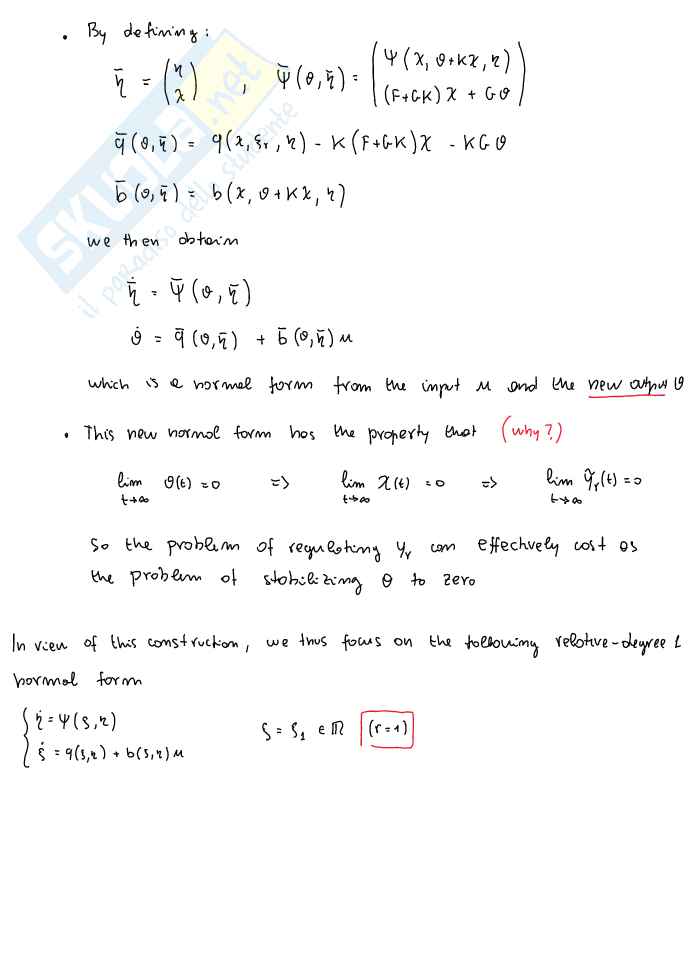 • By defining:
η̄ = (η χ) , Ψ̄(θ, η̄) = (Ψ(χ, θ+Kχ, η) (F+GK)χ + Gθ)
q̄(θ, η̄) = q(χ, ξr, η) - K(F+GK)χ - KGθ
b̄(θ, η̄) = b(χ, θ+Kχ, η)
we then obtain
η̄̇ = Ψ̄(θ, η̄)
θ̇ = q̄(θ, η̄) + b̄(θ, η̄)u
which is a normal form from the input u and the new output θ
• This new normal form has the property that (why?)
lim t→∞ θ(t) = 0 => lim t→∞ χ(t) = 0 => lim t→∞ ỹr(t) = 0
So the problem of regulating yr can effectively cost as
the problem of stabilizing θ to zero
In view of this construction, we thus focus on the following relative-degree 1
normal form
{ η̇ = Ψ(ξ, η) ξ = ξ1 ∈ ℝ (r=1)
ξ̇ = q(ξ, η) + b(ξ, η)u
SKUOLA.net
il paradiso dello studente